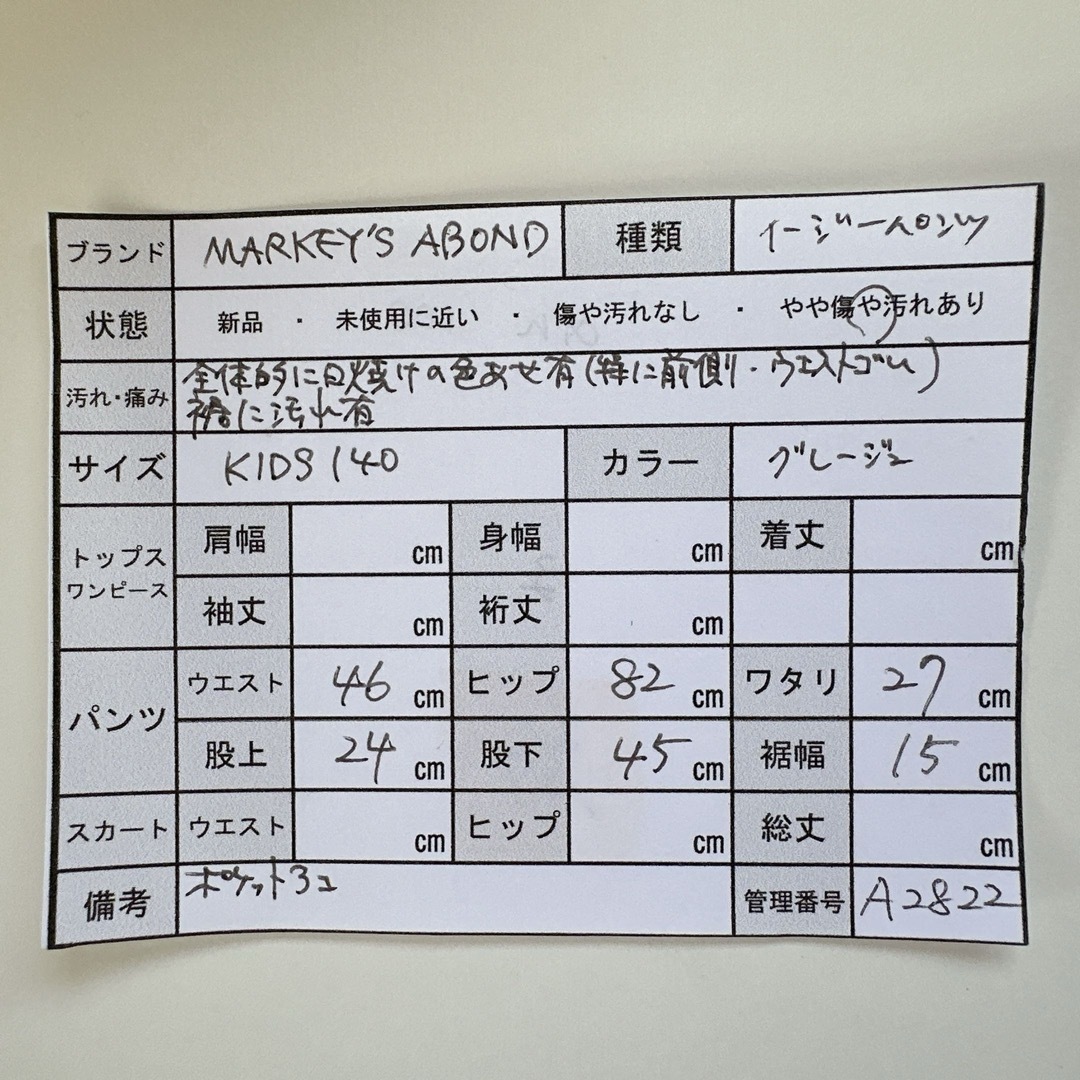 ブランド MARKEY'S ABOND 種類 イージーパンツ
状態 新品 ・ 未使用に近い ・ 傷や汚れなし ・ やや傷や汚れあり
汚れ・痛み 全体的に日焼けの色あせ有(特に前側・ウエストゴム)
裾に汚れ有
サイズ KIDS 140 カラー グレージュ
トップス ワンピース 肩幅 cm 身幅 cm 着丈 cm
袖丈 cm 裄丈 cm
パンツ ウエスト 46 cm ヒップ 82 cm ワタリ 27 cm
股上 24 cm 股下 45 cm 裾幅 15 cm
スカート ウエスト cm ヒップ cm 総丈 cm
備考 ポケット3コ 管理番号 A2822